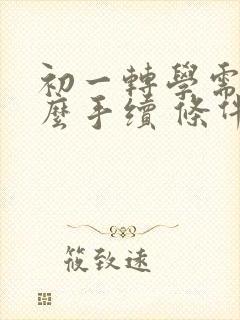 初一轉學需
麼手續 條件
筱致遠